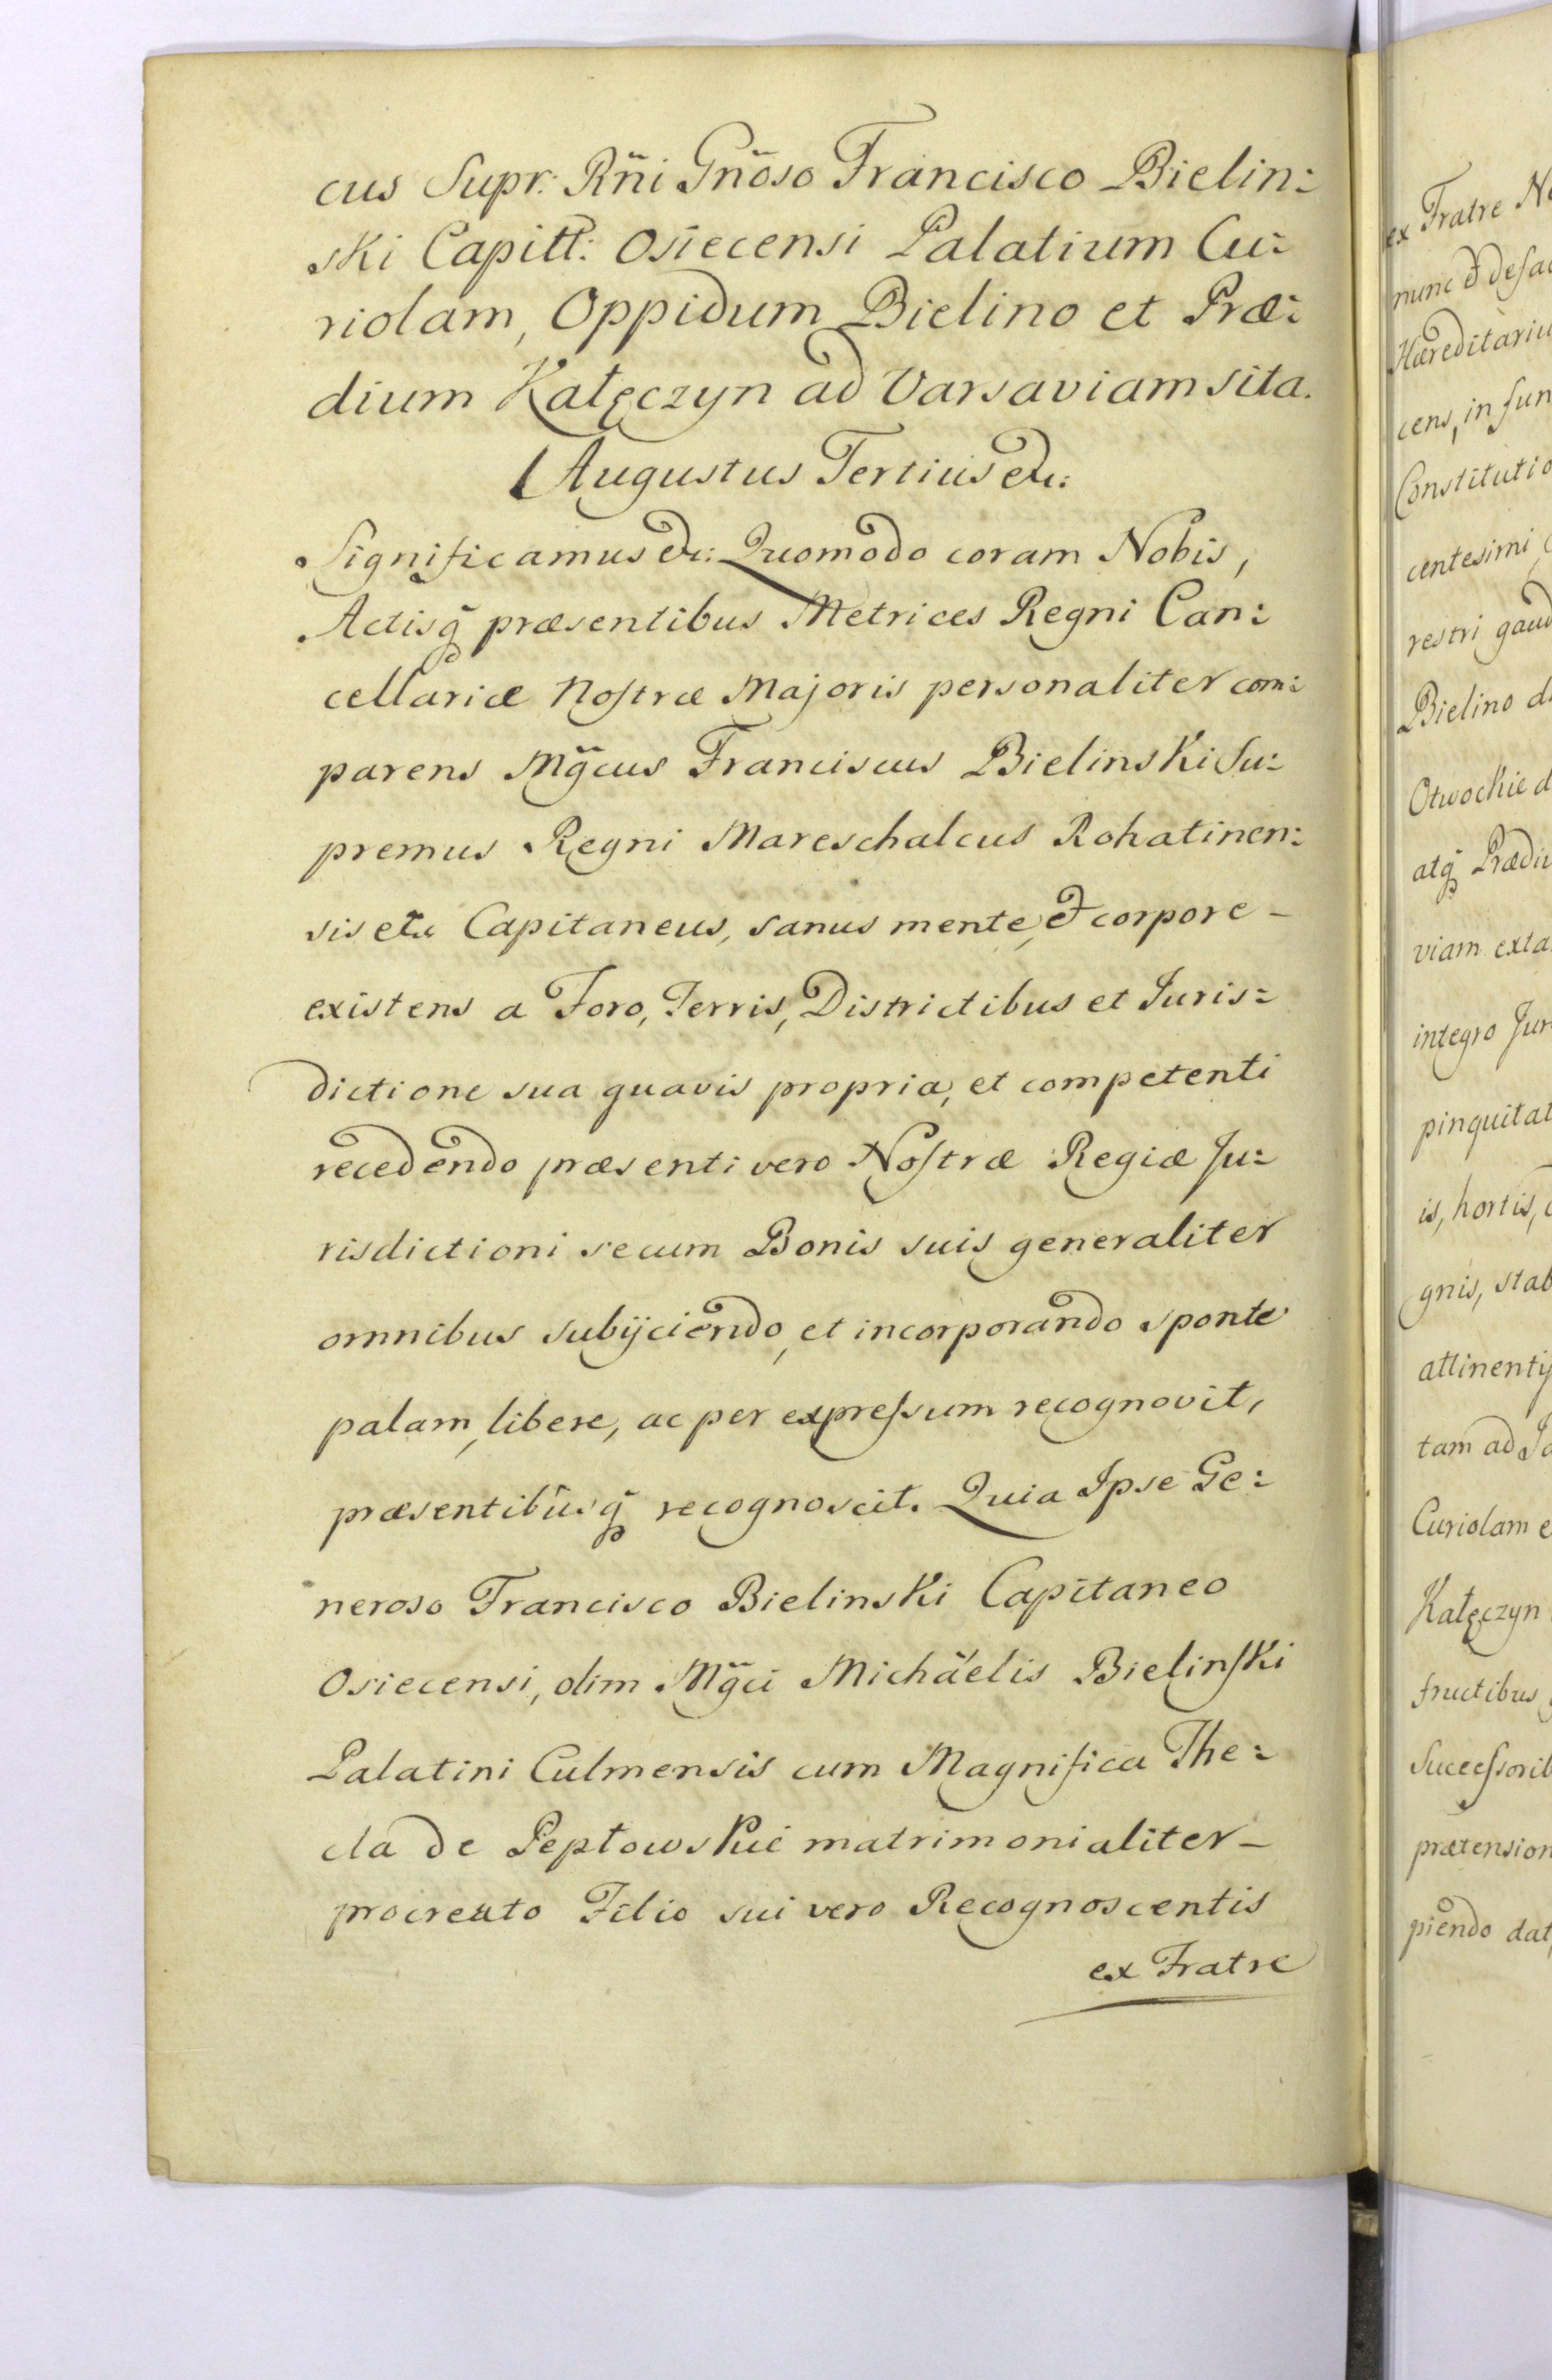 cus Supr: Rñi Gñoso Francisco Bielin:
ski Capitt: Osiecensi Palatium Cu:
riolam, Oppidum Bielino et Præ:
dium Kałęczyn ad Varsaviam sita.
Augustus Tertius etc:
Significamus etc: Quomodo coram Nobis,
Actisq̃ præsentibus Metrices Regni Can:
cellariæ Noſtræ Majoris personaliter com:
parens Mg̃cus Franciscus Bielinski Su:
premus Regni Mareschalcus Rohatinen:
sis etc Capitaneus, sanus mente, et corpore –
existens a Foro, Terris, Districtibus et Juris:
dictione sua quavis propria, et competenti
recedendo præsenti vero Noſtræ Regiæ Ju:
risdictioni se cum Bonis suis generaliter
omnibus subijciendo, et incorporando sponte
palam, libere, ac per expreſsum recognovit,
præsentibusq̃ recognoscit. Quia Ipse Ge:
neroso Francisco Bielinski Capitaneo
Osiecensi, olim Mg̃ci Michäelis Bielinſki
Palatini Culmensis cum Magnifica The:
cla de Pepłowskie matrimonialiter –
procreato Filio sui vero Recognoscentis
ex Fratre
ex Fratre
nunc et
Hæreditariu
cens, in fun
Constitutio
centesimi
restri gaud
Bielino
Otwockie d
atq̃ Prædiu
viam exta
integro Jur
pinquitat
is, hortis,
gnis, stab
attinentij
tam ad
Curiolam e
Kałęczyn
fructibus
Succeſsorib
prætension
piendo dat